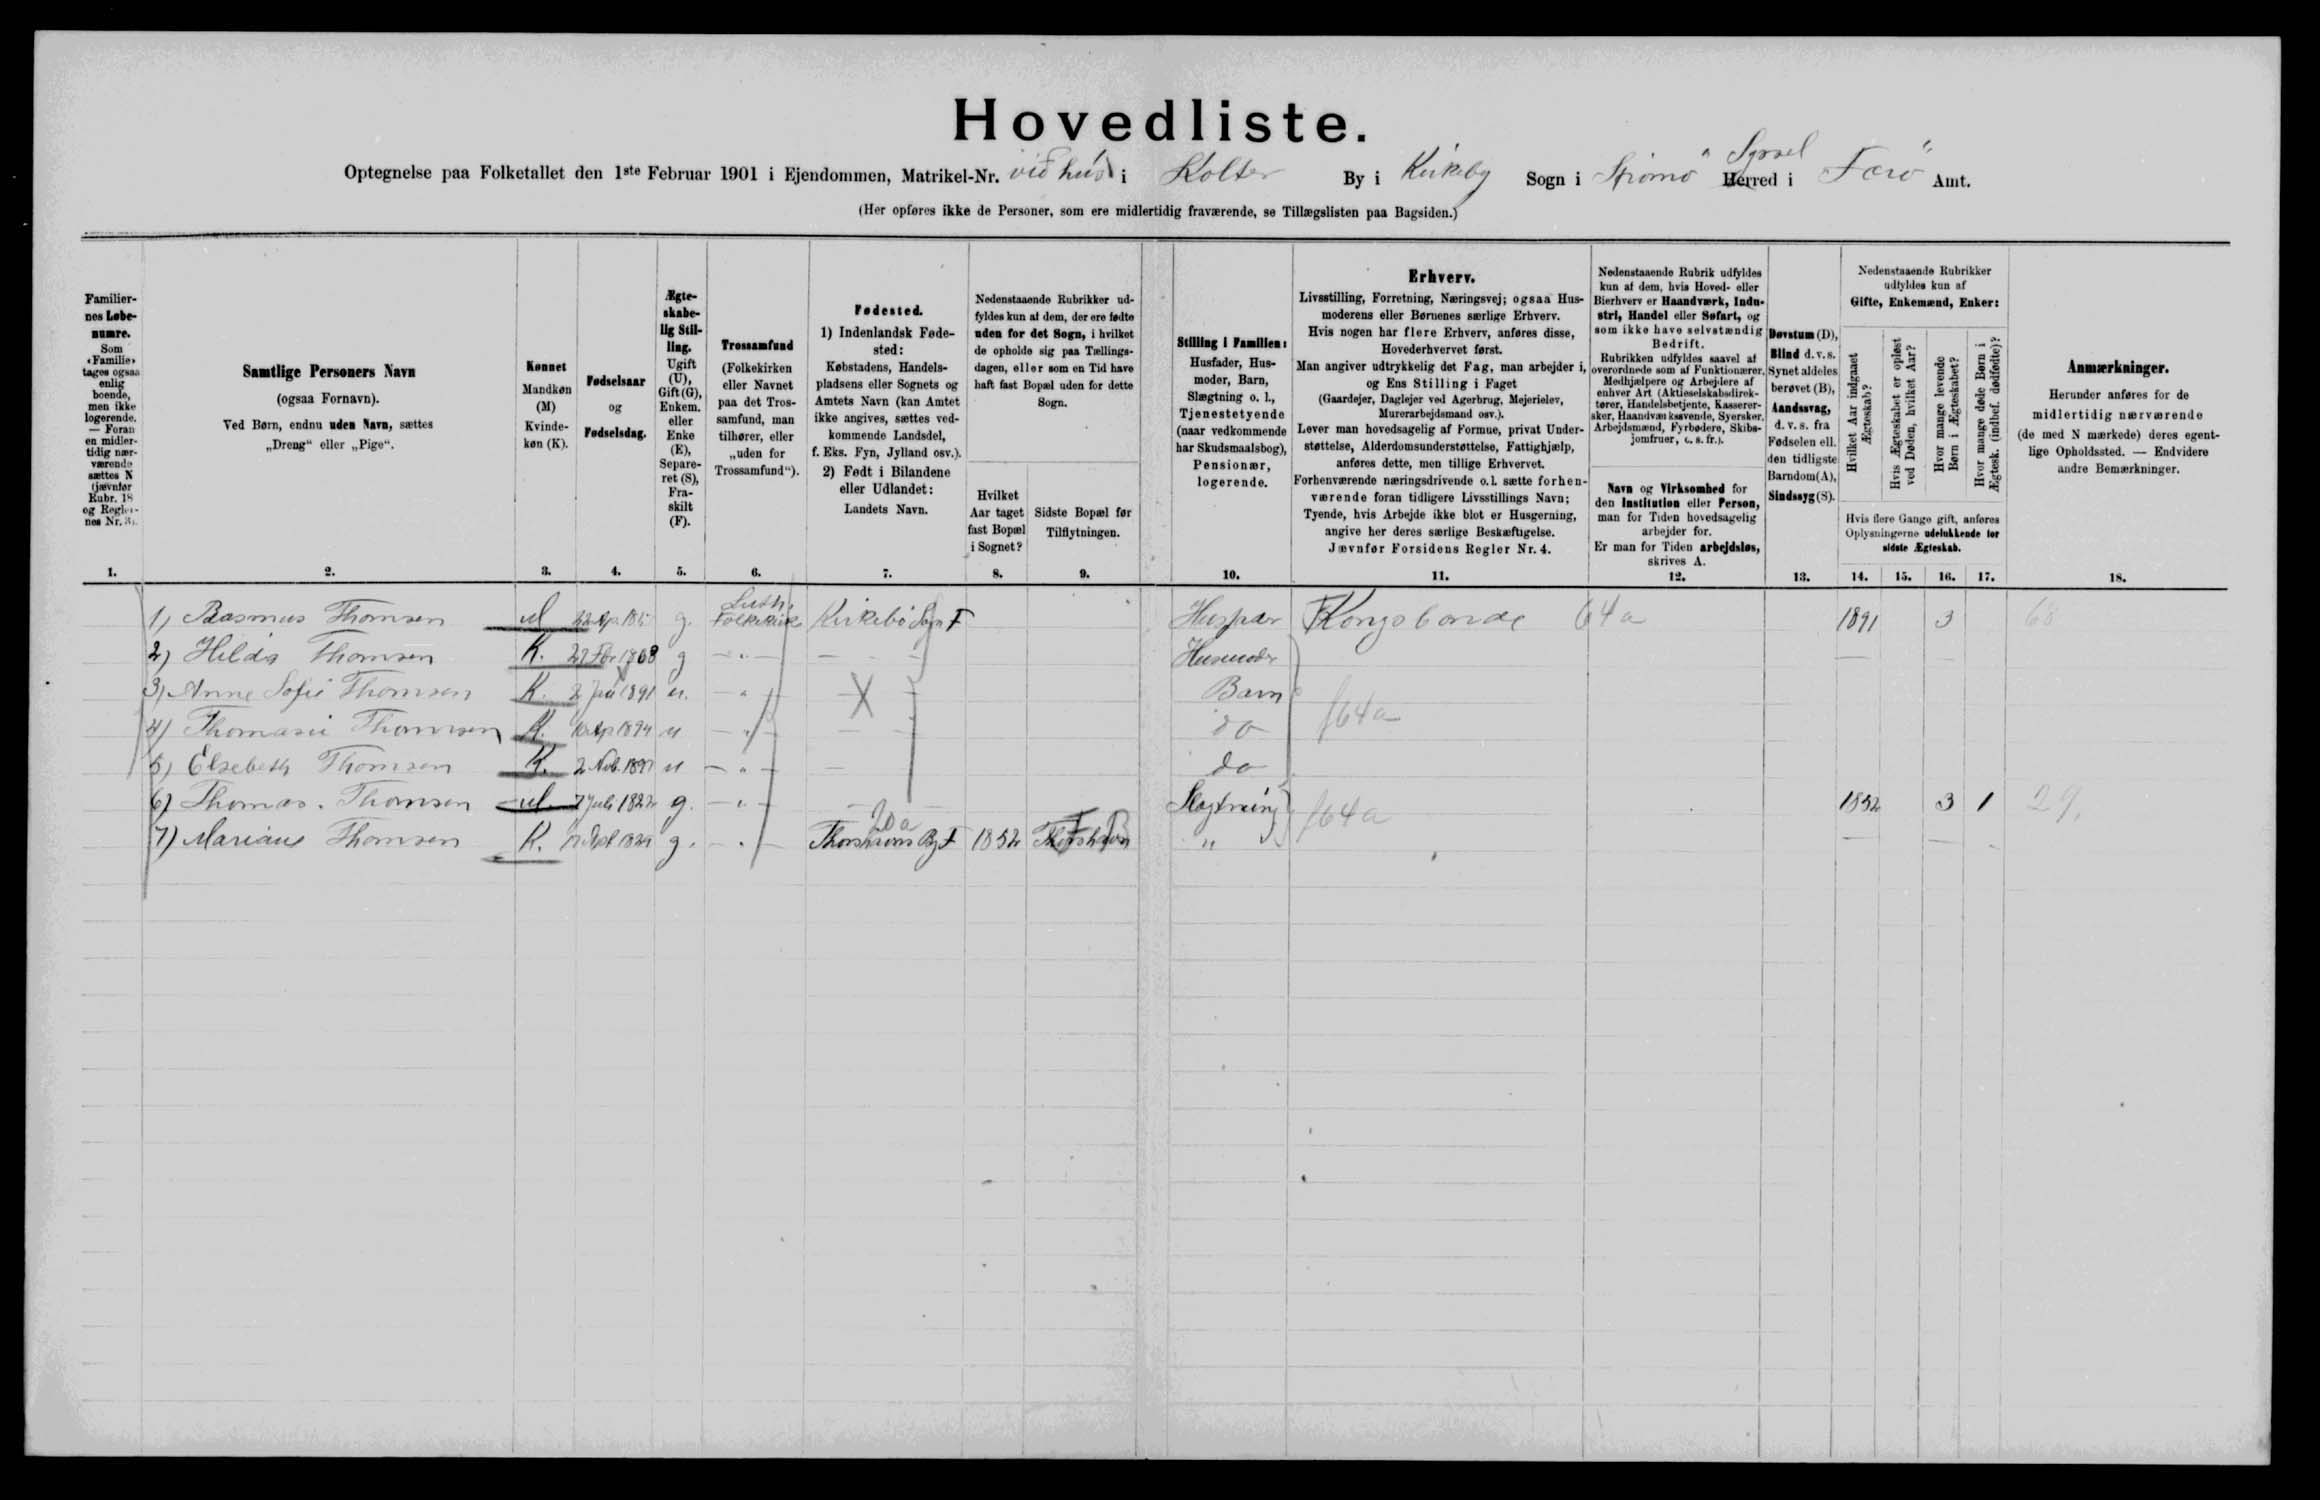 Hovedliste.
Optegnelse paa Folketallet den 1ste Februar 1901 i Ejendommen, Matrikel-Nr. við hús i Kolter By i Kirkeby Sogn i Strömö Syssel Herred i Færö Amt.
(Her opføres ikke de Personer, som ere midlertidig fraværende, se Tillægslisten paa Bagsiden.)
Familier-
nes Løbe-
numre.
Som
«Familie»
tages ogsaa
enlig
boende,
men ikke
logerende.
— Foran
en midler-
tidig nær-
værende
sættes N
(jævnfør
Rubr. 18
og Regler-
nes Nr. 3).
1.
Samtlige Personers Navn
(ogsaa Fornavn).
Ved Børn, endnu uden Navn, sættes
„Dreng“ eller „Pige“.
2.
Kønnet
Mandkøn
(M)
Kvinde-
køn (K).
3.
Fødselsaar
og
Fødselsdag.
4.
Ægte-
skabe-
lig Stil-
ling.
Ugift
(U),
Gift (G),
Enkem.
eller
Enke
(E),
Separe-
ret (S),
Fra-
skilt
(F).
5.
Trossamfund
(Folkekirken
eller Navnet
paa det Tros-
samfund, man
tilhører, eller
„uden for
Trossamfund“).
6.
Fødested.
1) Indenlandsk Føde-
sted:
Købstadens, Handels-
pladsens eller Sognets og
Amtets Navn (kan Amtet
ikke angives, sættes ved-
kommende Landsdel,
f. Eks. Fyn, Jylland osv.).
2) Født i Bilandene
eller Udlandet:
Landets Navn.
7.
Nedenstaaende Rubrikker ud-
fyldes kun af dem, der ere fødte
uden for det Sogn, i hvilket
de opholde sig paa Tællings-
dagen, eller som en Tid have
haft fast Bopæl uden for dette
Sogn.
Hvilket
Aar taget
fast Bopæl
i Sognet?
8.
Sidste Bopæl før
Tilflytningen.
9.
Stilling i Familien:
Husfader, Hus-
moder, Barn,
Slægtning o. l.,
Tjenestetyende
(naar vedkommende
har Skudsmaalsbog),
Pensionær,
logerende.
10.
Erhverv.
Livsstilling, Forretning, Næringsvej; ogsaa Hus-
moderens eller Børnenes særlige Erhverv.
Hvis nogen har flere Erhverv, anføres disse,
Hovederhvervet først.
Man angiver udtrykkelig det Fag, man arbejder i,
og Ens Stilling i Faget
(Gaardejer, Daglejer ved Agerbrug, Mejerielev,
Murerarbejdsmand osv.).
Lever man hovedsagelig af Formue, privat Under-
støttelse, Alderdomsunderstøttelse, Fattighjælp,
anføres dette, men tillige Erhvervet.
Forhenværende næringsdrivende o. l. sætte forhen-
værende foran tidligere Livsstillings Navn;
Tyende, hvis Arbejde ikke blot er Husgerning,
angive her deres særlige Beskæftigelse.
Jævnfør Forsidens Regler Nr. 4.
11.
Nedenstaaende Rubrik udfyldes
kun af dem, hvis Hoved- eller
Bierhverv er Haandværk, Indu-
stri, Handel eller Søfart, og
som ikke have selvstændig
Bedrift.
Rubrikken udfyldes saavel af
overordnede som af Funktionærer,
Medhjælpere og Arbejdere af
enhver Art (Aktieselskabsdirek-
tører, Handelsbetjente, Kasserer-
sker, Haandværksvende, Syersker,
Arbejdsmænd, Fyrbødere, Skibs-
jomfruer, o. s. fr.).
Navn og Virksomhed for
den Institution eller Person,
man for Tiden hovedsagelig
arbejder for.
Er man for Tiden arbejdsløs,
skrives A.
12.
Døvstum (D),
Blind d. v. s.
Synet aldeles
berøvet (B),
Aandssvag,
d. v. s. fra
Fødselen ell.
den tidligste
Barndom (A),
Sindssyg (S).
13.
Nedenstaaende Rubrikker
udfyldes kun af
Gifte, Enkemænd, Enker:
Hvilket Aar indgaaet
Ægteskab?
Hvis Ægteskabet er opløst
ved Døden, hvilket Aar?
Hvor mange levende
Børn i Ægteskabet?
Hvor mange døde Børn i
Ægtesk. (indbef. dødfødte)?
Hvis flere Gange gift, anføres
Oplysningerne udelukkende for
sidste Ægteskab.
14. 15. 16. 17.
Anmærkninger.
Herunder anføres for de
midlertidig nærværende
(de med N mærkede) deres egent-
lige Opholdssted. — Endvidere
andre Bemærkninger.
18.
1) Rasmus Thomsen M g. Luth. Folkekirke Kirkebö Sogn F Husfader Kongsbonde 64a 1891 3 68
2) Hilda Thomsen K. 1868 g — " — Husmoder
3) Anne Sofie Thomsen K. 1891 u. — " — X Barn
4) Thomasie Thomsen K. 1894 u — " — do f64a
5) Elsebeth Thomsen K. 2 Nvb. 1897 u — " — do
6) Thomas. Thomsen M 7 Juli 1822 g. — " — Slægtning f64a 1852 3 1 29.
7) Mariane Thomsen K. g. — " — Thorshavns By F 1852 Thorshavn "